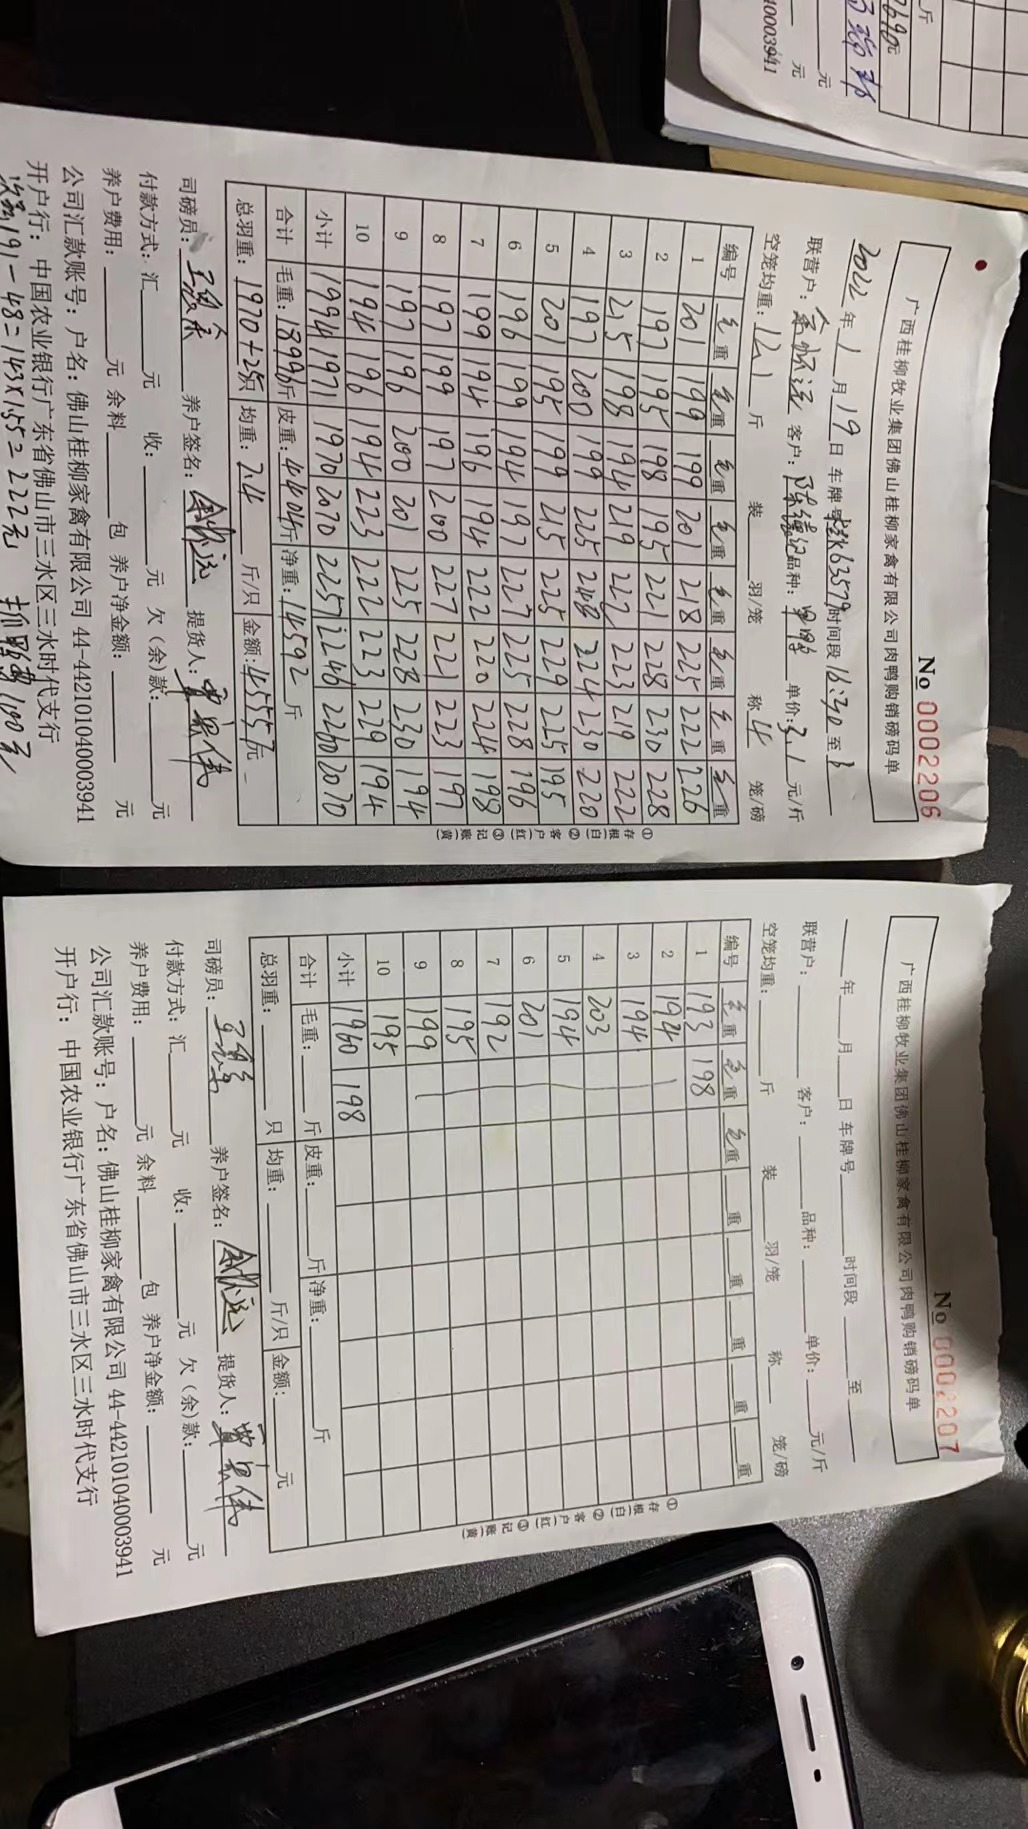 No 0002206
广西桂柳牧业集团佛山桂柳家禽有限公司肉鸭购销磅码单
2022年1月19日 车牌号 63579 时间段16:30至
联营户： 客户：陈德记 品种： 单价：3.1元/斤
空笼均重：12.1斤 装 羽/笼 称4笼/磅
编号 毛重 毛重 毛重 毛重 毛重 毛重 毛重 毛重
1 201 199 199 201 218 225 222 226
2 197 195 198 195 221 228 230 228
3 215 198 194 219 222 223 219 222
4 197 200 199 225 248 224 230 220
5 201 195 199 215 225 229 225 195
6 196 199 194 197 227 225 228 196
7 199 194 196 194 222 220 224 198
8 197 199 197 200 227 221 223 197
9 197 196 200 201 225 228 230 194
10 194 196 194 223 222 223 229 194
小计 1994 1971 1970 2070 2257 2246 2260 2070
合计 毛重：18996斤 皮重：4404斤 净重：14592斤
总羽重：1970+25只 均重：7.4斤/只 金额：45557元
①存根(白) ②客户(红) ③记账(黄)
司磅员： 养户签名： 提货人：
付款方式：汇 元 收： 元 欠（余）款： 元
养户费用： 元 余料 包 养户净金额： 元
公司汇款账号：户名：佛山桂柳家禽有限公司 44-442101040003941
开户行：中国农业银行广东省佛山市三水区三水时代支行
191-48=143×1.55=222元 抓鸭费100元
No 0002207
广西桂柳牧业集团佛山桂柳家禽有限公司肉鸭购销磅码单
年 月 日 车牌号 时间段 至
联营户： 客户： 品种： 单价： 元/斤
空笼均重： 斤 装 羽/笼 称 笼/磅
编号 毛重 毛重 毛重 重 重 重 重 重
1 193 198
2 194
3 194
4 203
5 194
6 201
7 192
8 195
9 199
10 195
小计 1960 198
合计 毛重： 斤 皮重： 斤 净重： 斤
总羽重： 只 均重： 斤/只 金额： 元
①存根(白) ②客户(红) ③记账(黄)
司磅员： 养户签名： 提货人：
付款方式：汇 元 收： 元 欠（余）款： 元
养户费用： 元 余料 包 养户净金额： 元
公司汇款账号：户名：佛山桂柳家禽有限公司 44-442101040003941
开户行：中国农业银行广东省佛山市三水区三水时代支行
斤
元
元
40003941